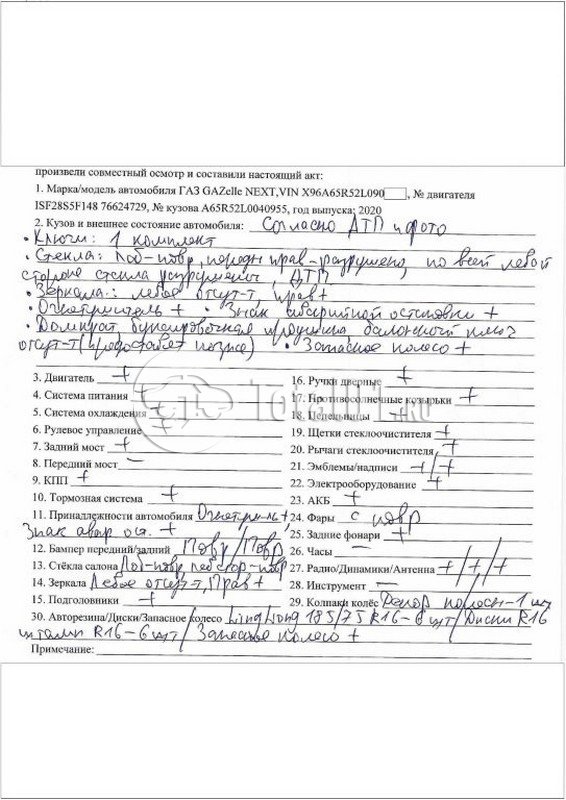 произвели совместный осмотр и составили настоящий акт:
1. Марка/модель автомобиля ГАЗ GAZelle NEXT,VIN X96A65R52L090 , № двигателя
ISF28S5F148 76624729, № кузова A65R52L0040955, год выпуска: 2020
2. Кузов и внешнее состояние автомобиля: Согласно ДТП и фото
• Ключи: 1 комплект
• Стекла: Лоб-повр, передн прав-разрушено, по всей левой
стороне стекла разрушены, ДТП
• Зеркала: левое отсут-т, прав +
• Огнетушитель + • Знак аварийной остановки +
• Домкрат, буксировочная проушина баллонный ключ
отсут-т (предоставят позже) • Запасное колесо +
3. Двигатель +
4. Система питания +
5. Система охлаждения +
6. Рулевое управление +
7. Задний мост +
8. Передний мост –
9. КПП +
10. Тормозная система +
11. Принадлежности автомобиля Огнетушитель +,
Знак авар ост. +
12. Бампер передний/задний Повр/Повр
13. Стёкла салона Лоб-повр, лев стор-повр
14. Зеркала Левое отсут-т, Прав +
15. Подголовники +
16. Ручки дверные +
17. Противосолнечные козырьки +
18. Пепельницы +
19. Щетки стеклоочистителя +
20. Рычаги стеклоочистителя +
21. Эмблемы/надписи +/+
22. Электрооборудование +
23. АКБ +
24. Фары с повр
25. Задние фонари +
26. Часы –
27. Радио/Динамики/Антенна +/+/+
28. Инструмент –
29. Колпаки колёс Декор колесн-1 шт
30. Авторезина/Диски/Запасное колесо LingLong 185/75 R16-6 шт/Диски R16
штамп R16-6 шт/Запасное колесо +
Примечание:
TOTAL01.RU